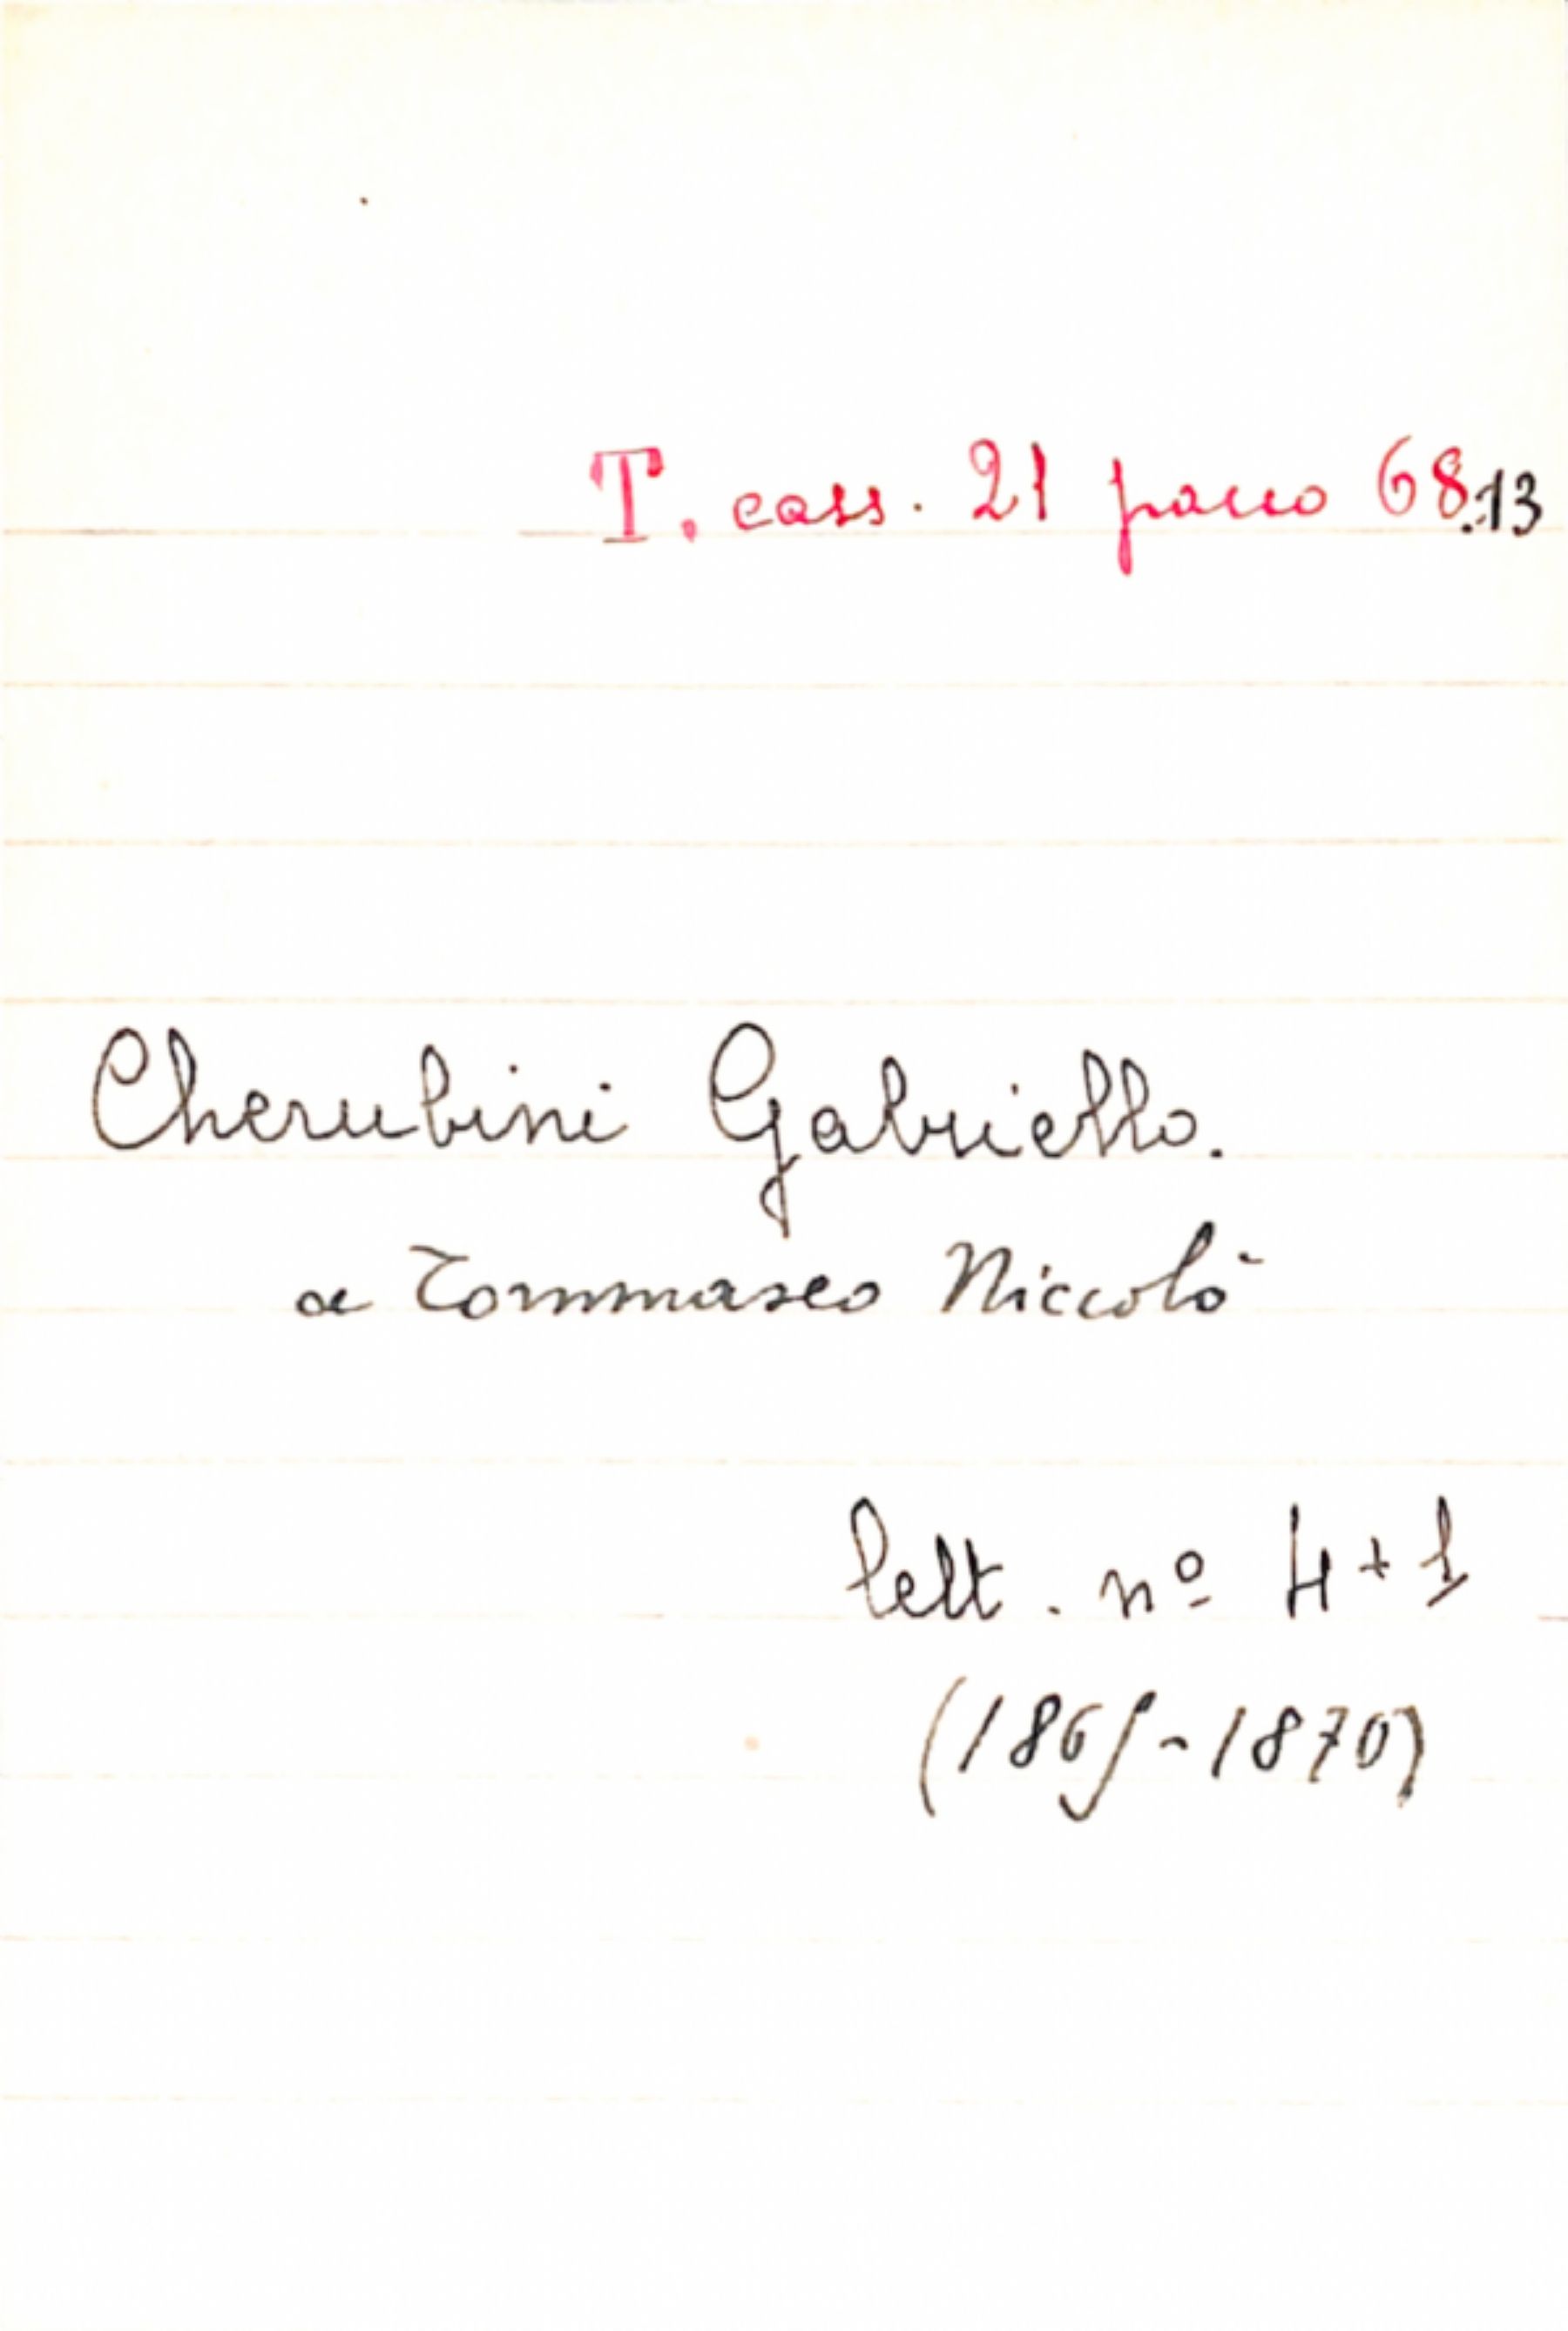 T. cass. 21 pacco 68.13
Cherubini Gabriello.
a Tommaseo Niccolò
lett. nº 4+1
(1865-1870)